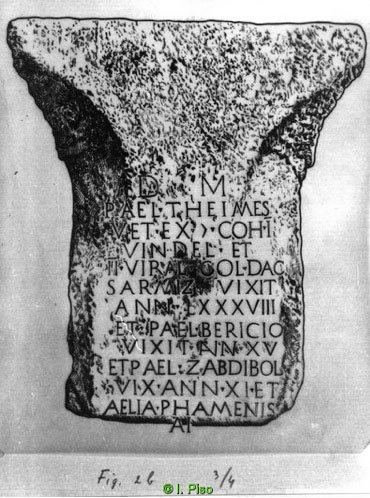 D M
P AEL THEIMES
VET EX ) COH I
VINDEL ET
II VIRAL COL DAC
SARMIZ VIXIT
ANN LXXXVIII
ET P AEL BERICIO
VIXIT AN XV
ET P AEL ZABDIBOL
VIX ANN XI ET
AELIA PHAMENIS
AI
Fig. 2b 3/4
© I. Piso